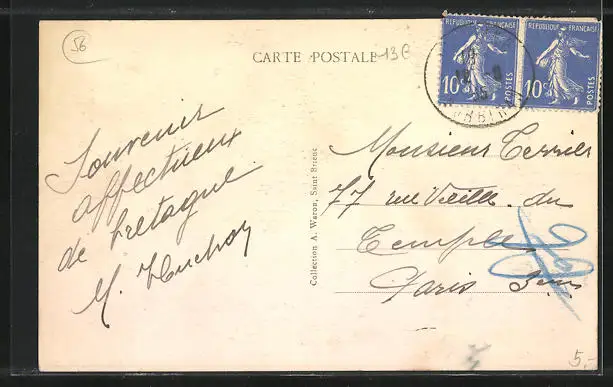 56
CARTE POSTALE
13€
RÉPUBLIQUE FRANÇAISE
10c
POSTES
RÉPUBLIQUE FRANÇAISE
10c
POSTES
Souvenir
affectueux
de bretagne
M.
Collection A. Waron, Saint Brieuc
Monsieur Terrier
77 rue Vieille du
Temple
Paris 3eme
5.-